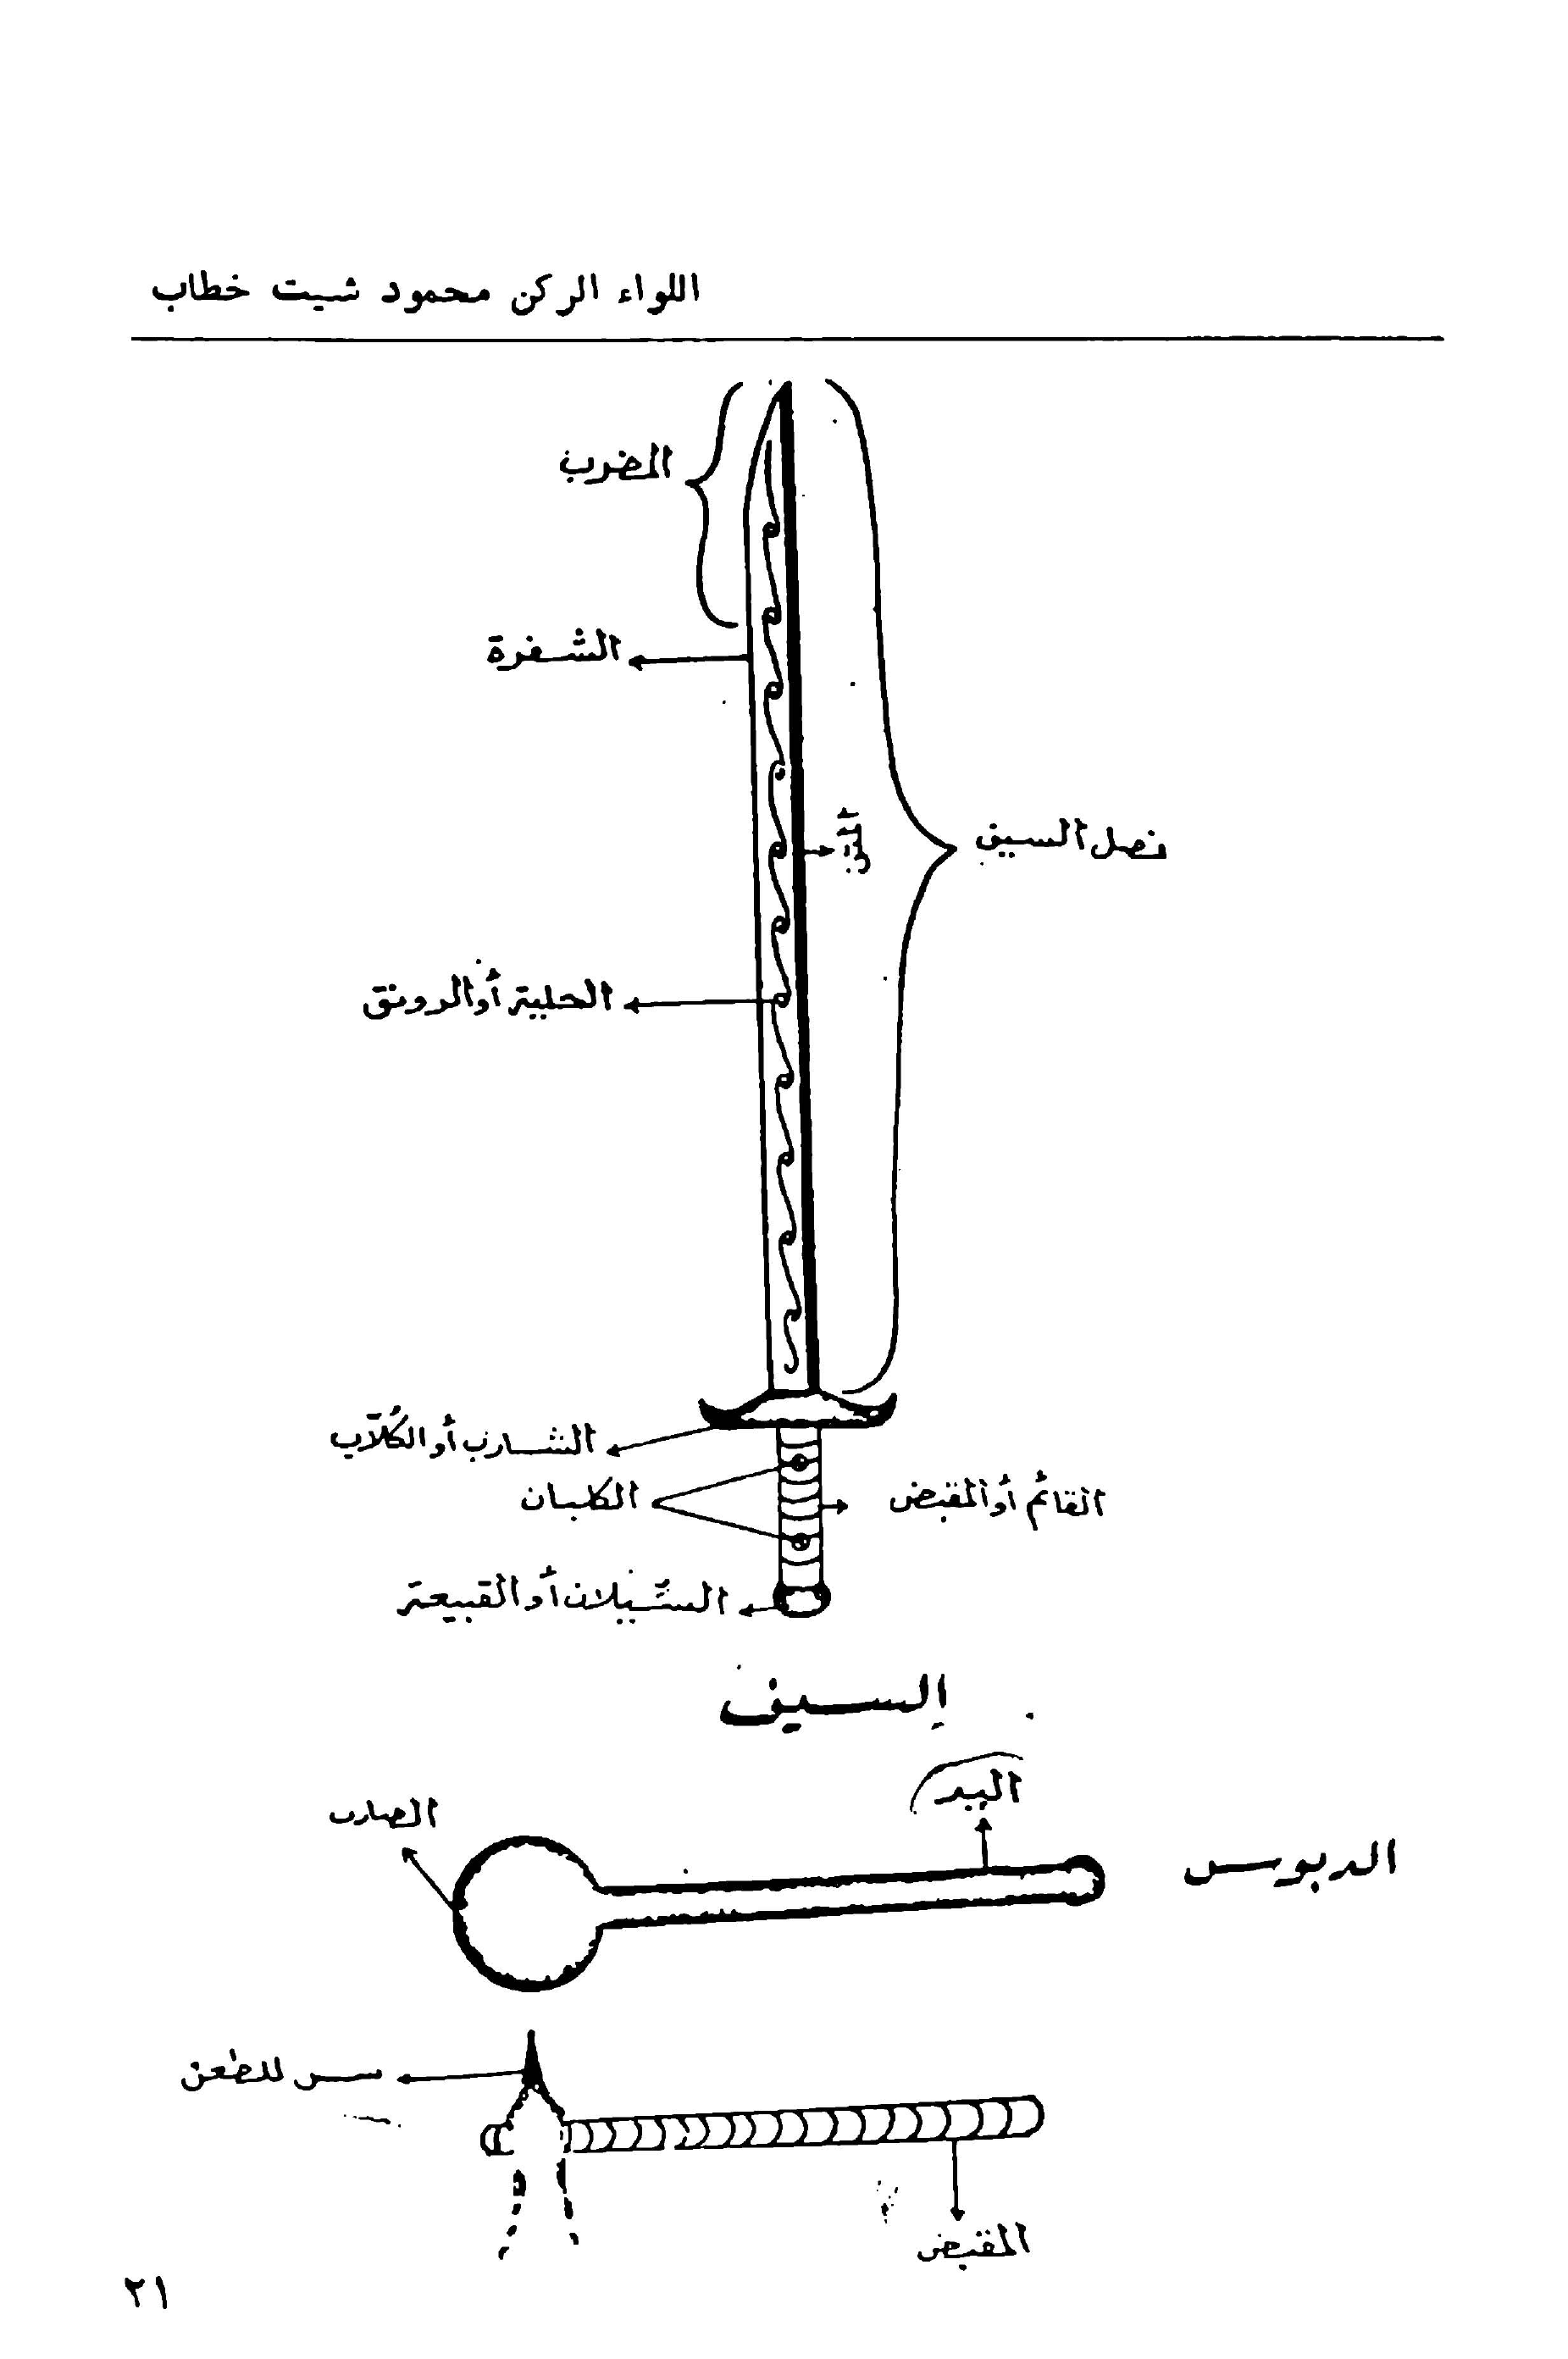 اللواء الركن محمود شيت خطاب
المضرب
الشفرة
نصل السيف
المتن
الحلية أو الرونق
الشارب أو الكُلّاب
الكلبان
القائم أو المقبض
السِّيلان أو القبيعة
السيف
اليد
الضارب
الدبوس
سن للطعن
المقبض
٢١